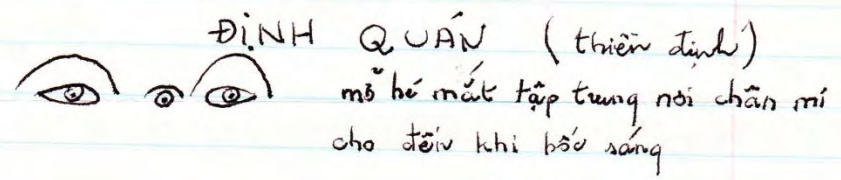 ĐỊNH QUÁN (thiền định)
mở hé mắt tập trung nơi chân mí
cho đến khi bốc sáng